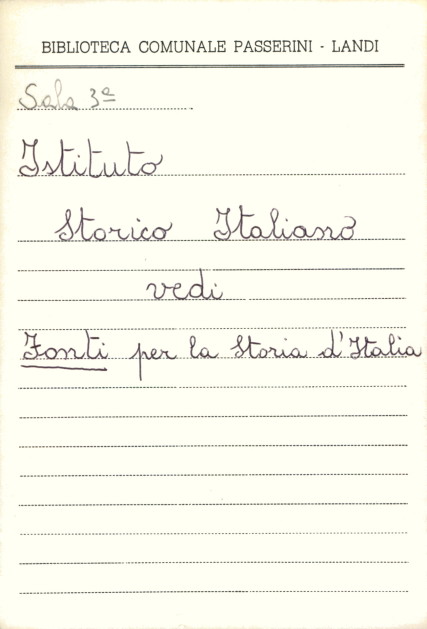 BIBLIOTECA COMUNALE PASSERINI - LANDI
Sala 3ª
Istituto
Storico Italiano
vedi
Fonti per la Storia d'Italia